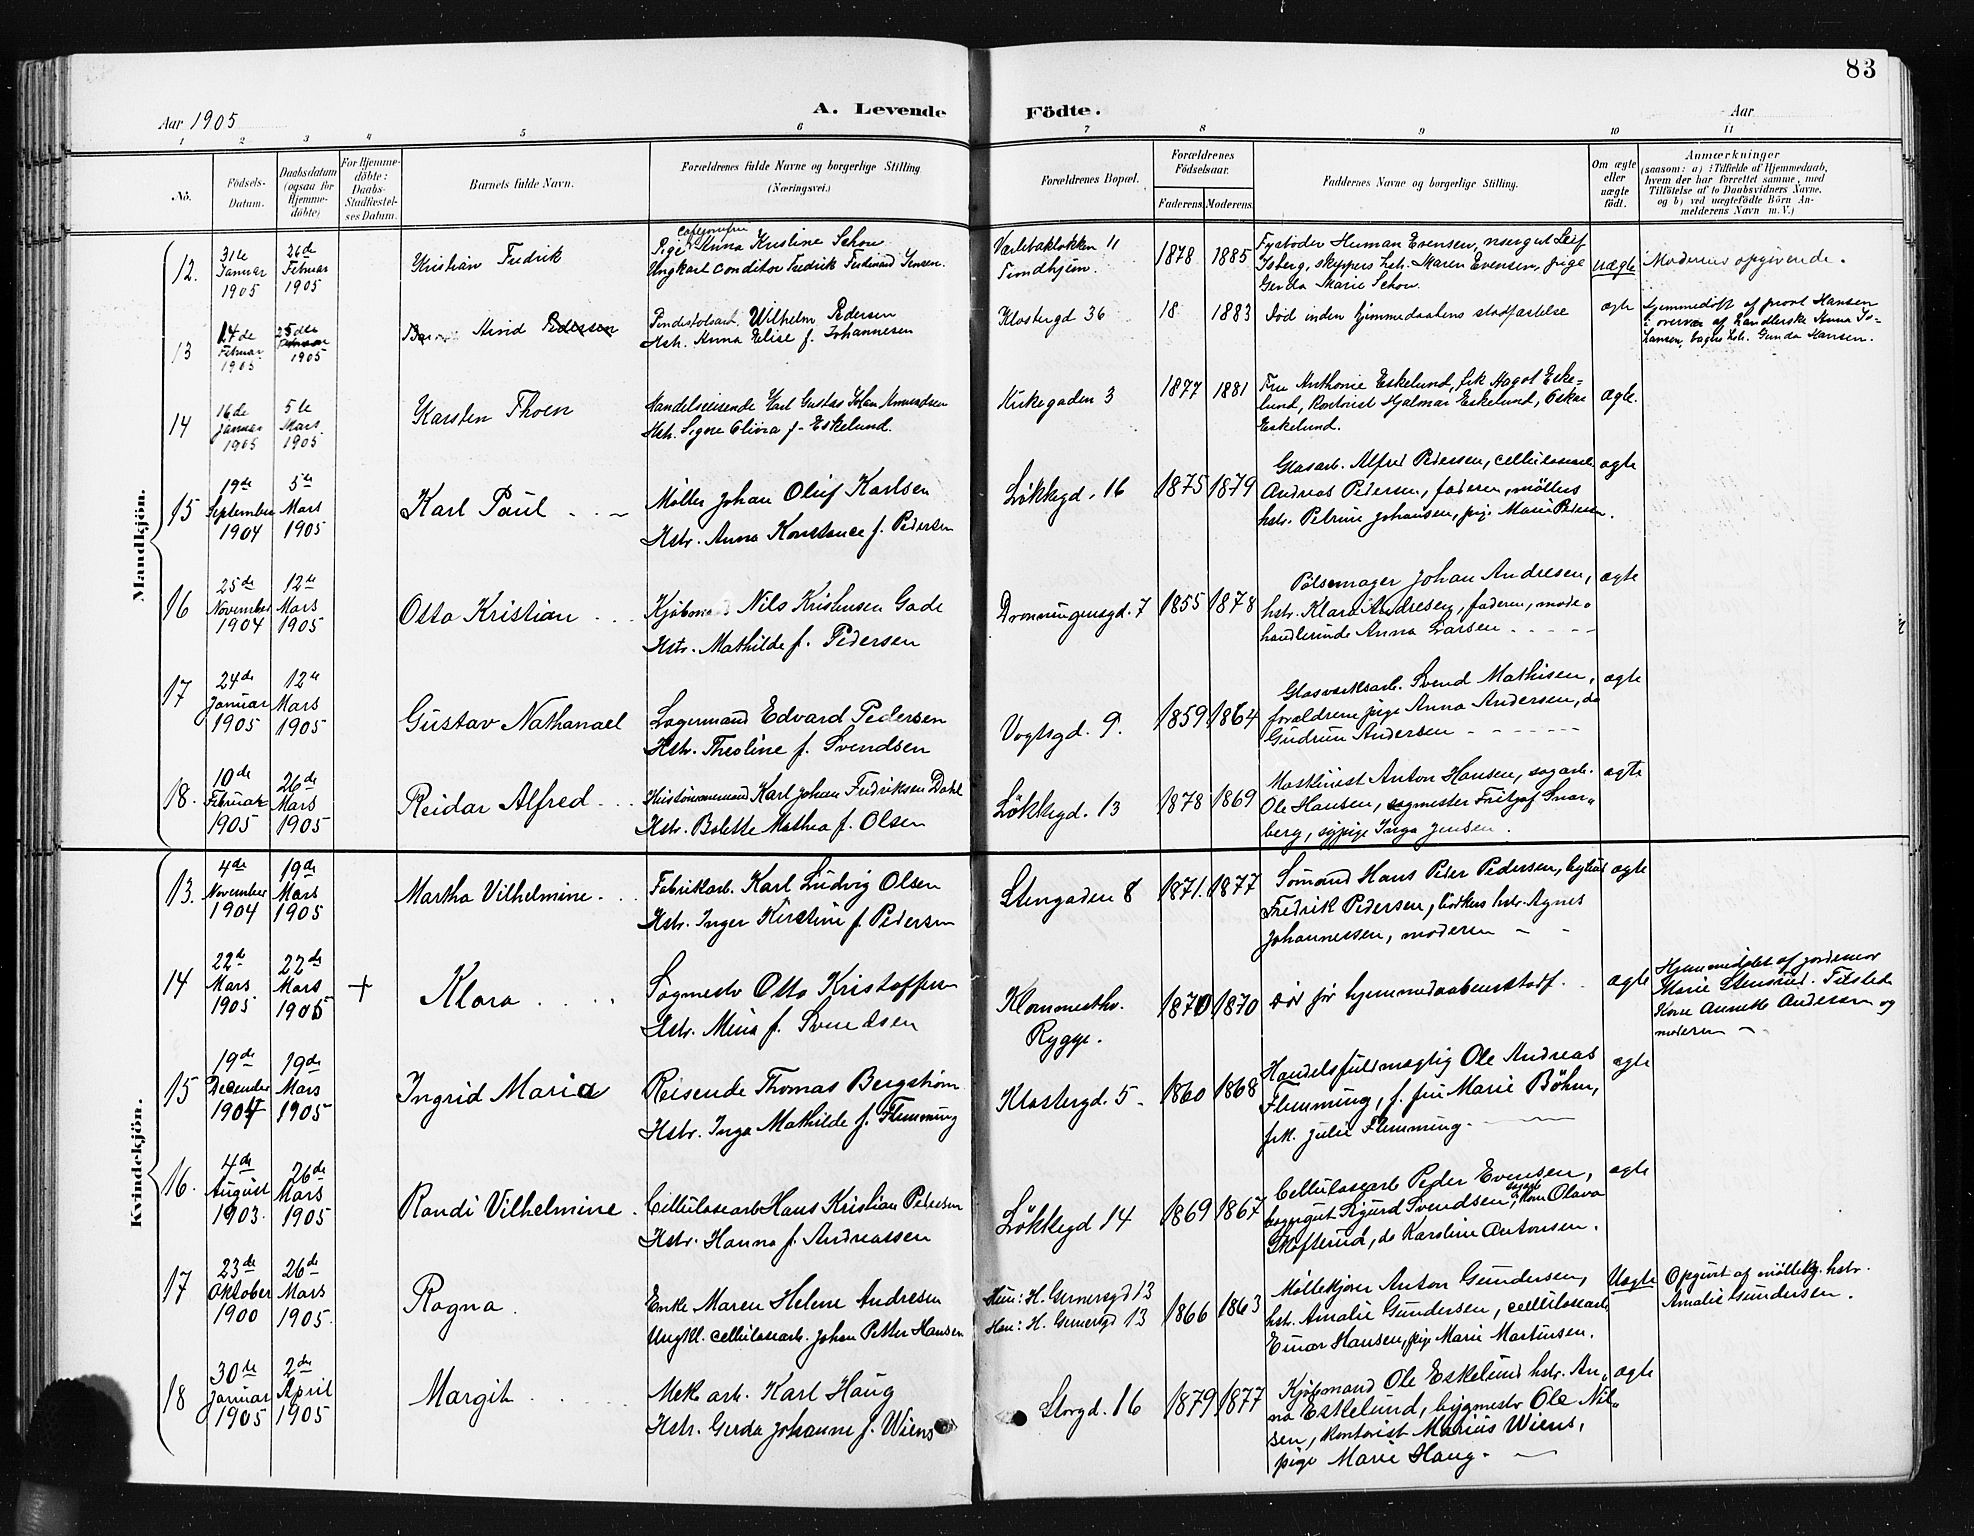 83
A. Levende Födte.
Aar 1905
Aar
1 2 3 4 5 6 7 8 9 10 11
No.
Födsels-Datum.
Daabsdatum (ogsaa for Hjemme-döbte)
For Hjemme-döbte: Daabs-Stadfæstel-ses Datum.
Barnets fulde Navn.
Forældrenes fulde Navne og borgerlige Stilling (Næringsvei.)
Forældrenes Bopæl.
Forældrenes Födselsaar.
Faderens Moderens
Faddernes Navne og borgerlige Stilling.
Om ægte eller uægte födt.
Anmærkninger
(saasom: a) i Tilfælde af Hjemmedaab,
hvem der har forrettet samme, med
Tilföielse af to Daabsvidners Navne,
og b) ved uægtefödte Börn An-
melderens Navn m. V.)
Mandkjön.
12. 31te Januar 1905 26de Februar 1905 Kristian Fredrik
Pige Anna Kristine Schou
Ungkarl conditor Fredrik Ferdinand Jensen.
1878 1885
Isberg, skippers hstr. Maren Evensen, pige
Gerda Marie Schou.
uægte Moderens opgivende.
13 14de Februar 1905 25de 1905 Arvid Pedersen
Wilhelm Pedersen
Hstr. Anna Elise f. Johannesen
Klostergd 36 18 1883 Död inden hjemmedaabens stadfæstelse ægte
Hjemmedöbt af provst Hansen
i overvær af handlerske Anna Jo-
hansen, bagers hstr. Gunda Hansen.
14 16de Januar 1905 5te Mars 1905 Karsten Thoen
Handelsreisende Karl Gustav Johan Amundsen
Hstr. Signe Olivia f. Eskelund.
Kirkegaden 3 1877 1881
Fru Anthonie Eskelund, frk Hagot Eske-
lund, Kontorist Hjalmar Eskelund, Oskar
Eskelund.
ægte.
15 19de September 1904 5te Mars 1905 Karl Paul
Möller Johan Oluf Karlsen
Hstr. Anna Konstance f. Pedersen
Lökkegd. 16 1875 1879
Glasarb. Alfred Pedersen, cellulosearb
Andreas Pedersen, faderen, möllers
hstr. Petrine Johansen, pige Marie Pedersen.
ægte
16 25de November 1904 12te Mars 1905 Otto Kristian
Kjöbmand Nils Kristensen Gade
Hstr. Mathilde f. Pedersen
Dronningensgd. 7 1855 1878
Pölsemager Johan Andresen,
hstr. Klara Andresen, faderen, mode-
handlerinde Anna Larsen
ægte
17 24de Januar 1905 12te Mars 1905 Gustav Nathanael
Lagermand Edvard Pedersen
Hstr. Theoline f. Svendsen
Vogtsgd. 9. 1859 1864
Glasværksarb. Svend Mathisen,
forældrene pige Anna Andersen, do
Gudrun Andersen
ægte
18. 10de Februar 1905 26de Mars 1905 Reidar Alfred
Karl Johan Fredriksen Dahl
Hstr. Bolette Mathea f. Olsen
Lökkegd. 13 1878 1869
Maskinist Anton Hansen, sagarb.
Ole Hansen, sagmester Fritjof Snar-
berg, sypige Inga Jensen.
ægte
Kvindekjön.
13. 4de November 1904 19de Mars 1905 Martha Vilhelmine
Fabrikarb. Karl Ludvig Olsen
Hstr. Inger Kirstine f. Pedersen
Stengaden 8 1871. 1877
Sömand Hans Peter Pedersen,
Fredrik Pedersen, bödkers hstr. Agnes
Johannessen, moderen
ægte
14 22de Mars 1905 22de Mars 1905 + Klara
Sagmestr Otto Kristoffersen
Hstr. Mina f. Svendsen
Rygge.
1870 1870 död för hjemmedaabens stadf. ægte
Hjemmedöbt af jordemor
Marie Stensrud. Tilstede
Kone Annette Andersen og
moderen
15 19de December 1904 19de Mars 1905 Ingrid Maria
Reisende Thomas Bergström
Hstr. Inga Mathilde f. Flemming
Klostergd. 5 1860 1868
Handelsfuldmægtig Ole Andreas
Flemming, f. fru Marie Böhm,
frk. Julie Flemming.
ægte
16. 4de August 1903. 26de Mars 1905 Randi Vilhelmine.
Cellulosearb Hans Kristian Pedersen
Hstr. Hanna f. Andreassen
Lökkegd 14 1869 1867
Cellulosearb Peder Evensen,
Sigurd Svendsen, Kone Olava
Skofterud, do Karoline Antonsen.
ægte
17 23de Oktober 1900 26de Mars 1905. Ragna.
Enke Maren Helene Andresen
Ungkl. cellulosearb. Johan Petter Hansen
Hun: H. Gernersgd 13
Han: H. Gernersgd 13
1866 1863
Möllekjörer Anton Gundersen,
hstr. Amalie Gundersen, cellulosearb
Einar Hansen, pige Marie Martinsen.
Uægte
Opgivet af möllekj. hstr.
Amalie Gundersen.
18 30te Januar 1905 2den April 1905 Margit
Mek arb. Karl Haug
Hstr. Gerda Johanne f. Wiens
Storgd. 16 1879 1877
Kjöbmand Ole Eskelund hstr. An-
na Eskelund, bygmestr Ole Nil-
sen, kontorist Marius Wiens,
pige Marie Haug.
ægte